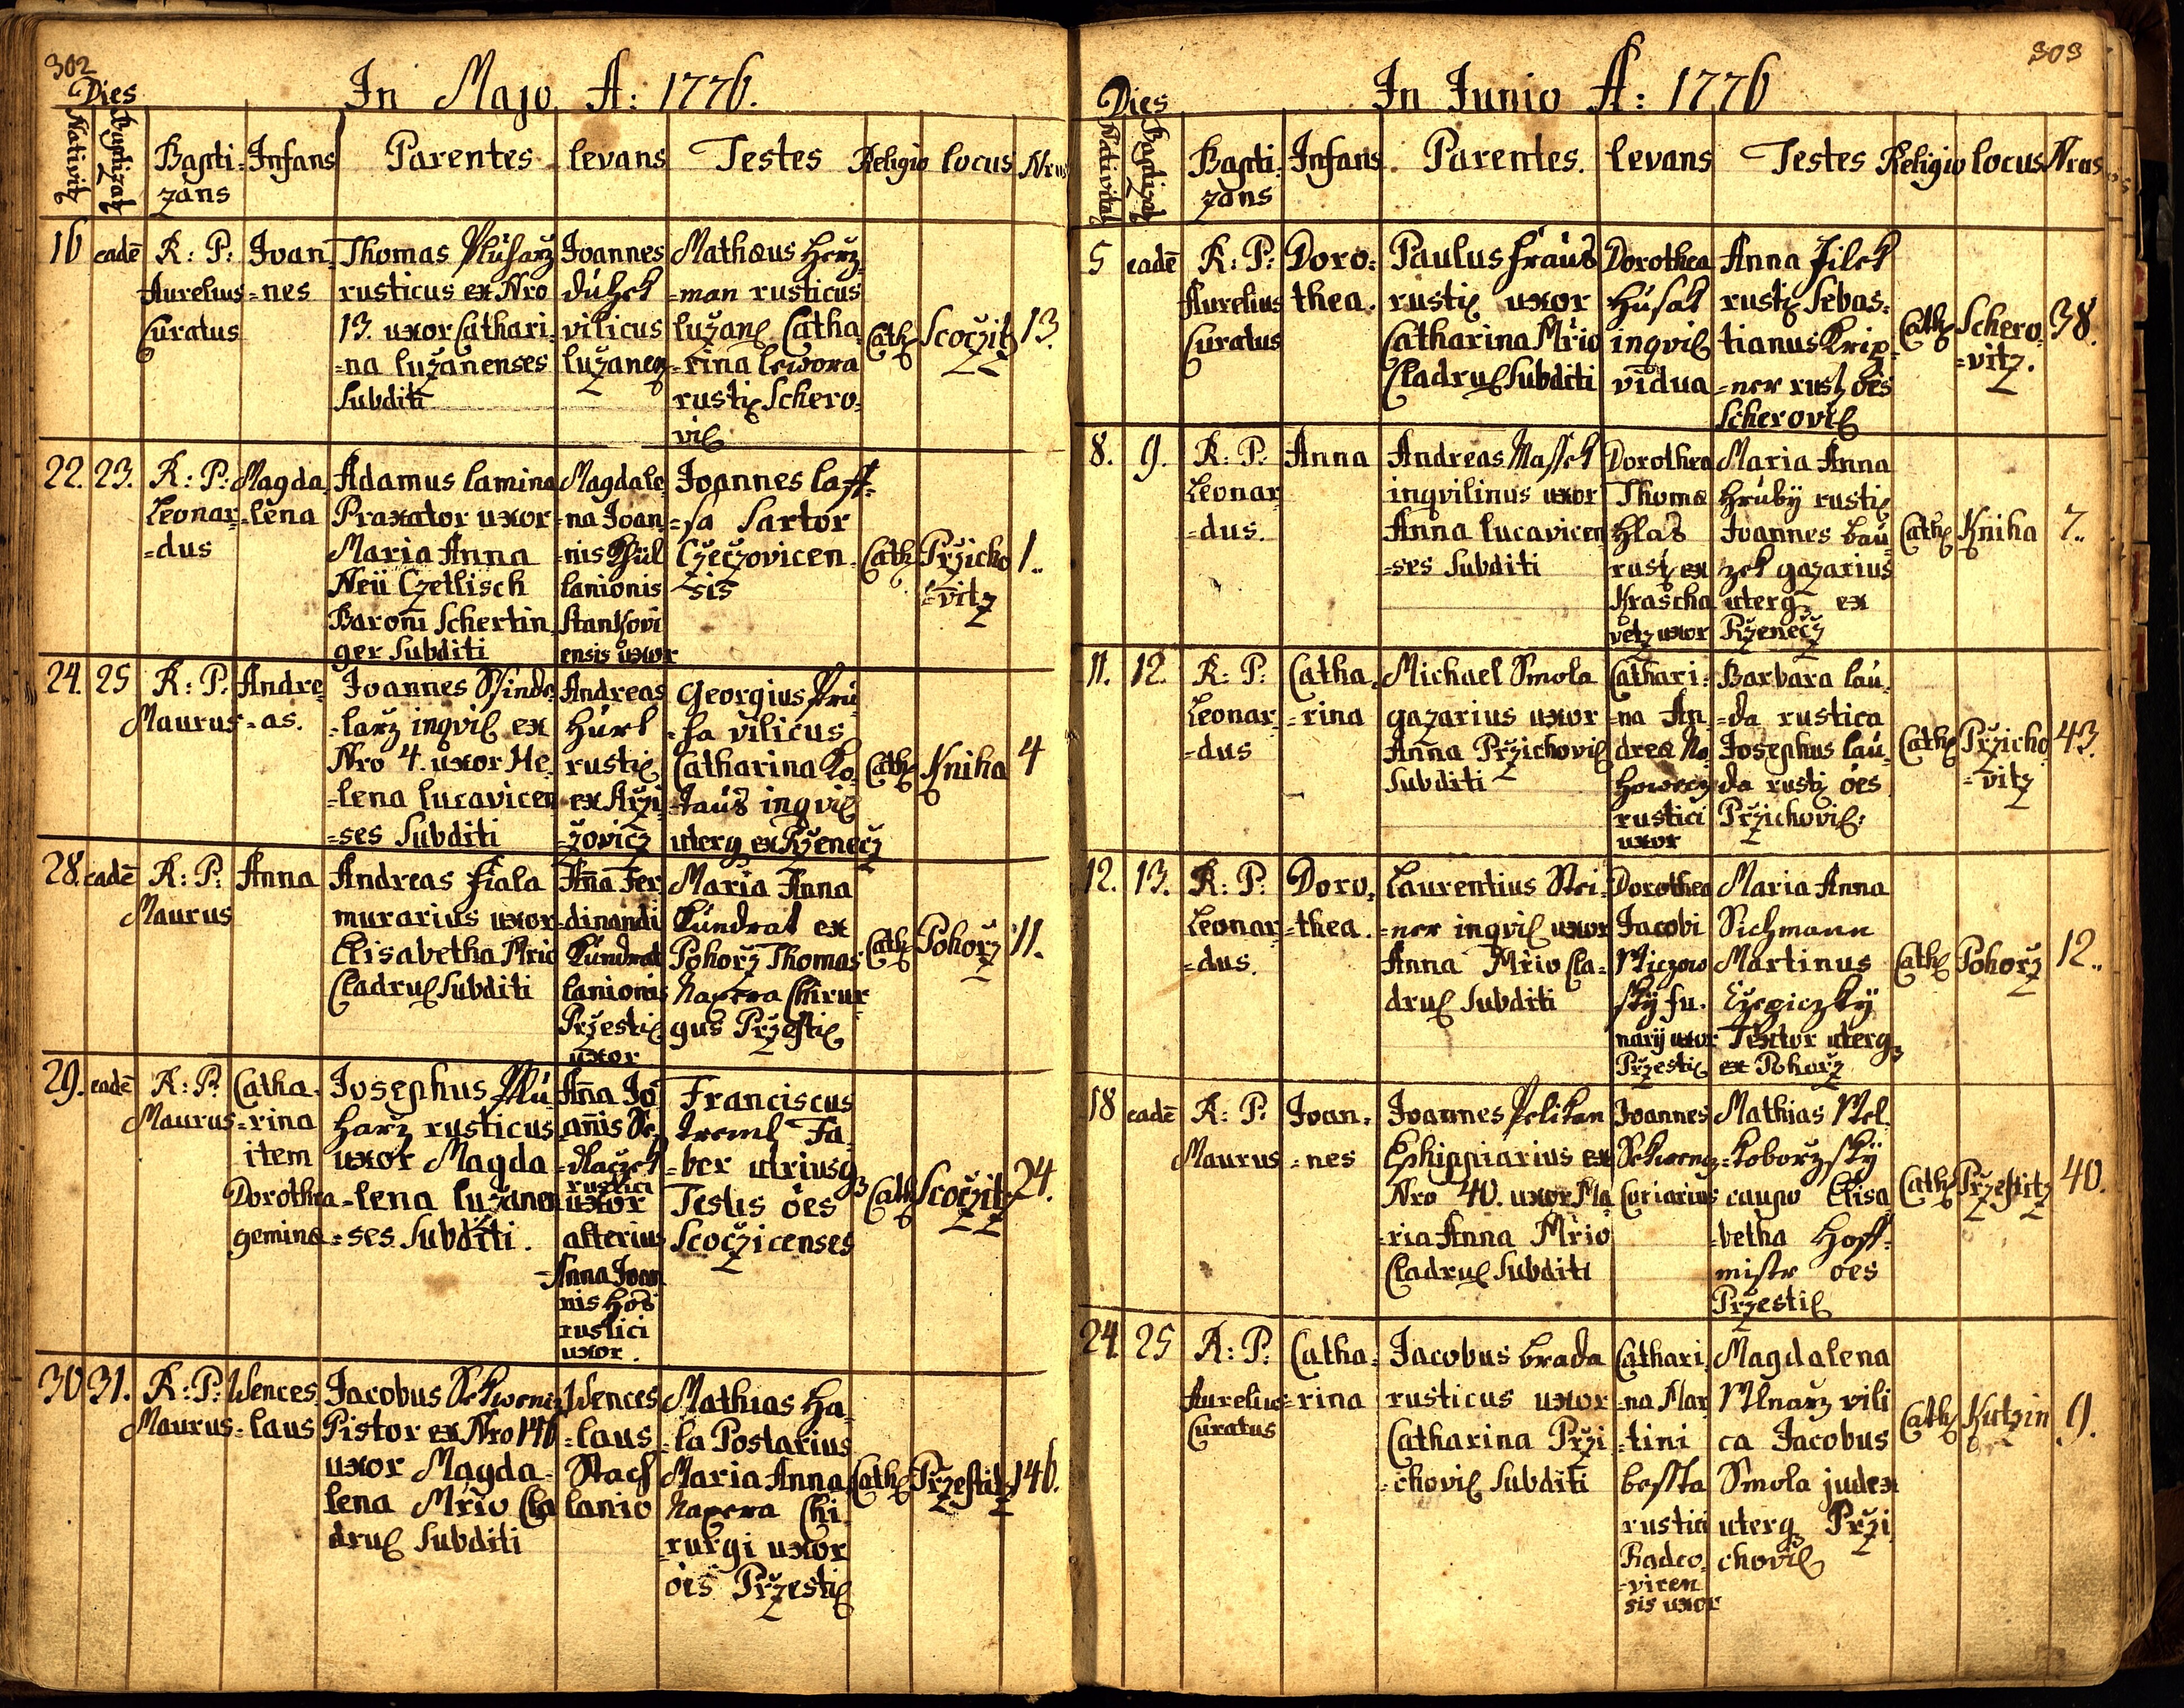 302
In Majo A: 1776.
Dies
Nativit
Baptizat
Bapti=
zans
Infans
Parentes
levans
Testes
Religio
locus
Nrus
16
eadē
R: P:
Aurelius
Curatus
Joan,
=nes
Thomas Pluharz
rusticus ex Nro
13. uxor Cathari,
=na lužanenses
Subditi
Joannes
villicus
Mathæus Herz
=man rusticus
Catha
=rina lewora
Schero,
Cath
Scoczitz
13.
22.
23.
R: P:
Leonar
=dus
Magda,
=lena
Adamus lamina
Praxator uxor
Maria Anna
Neü Czetlisch
Baroni Schertin,
ger Subditi
Magdale,
=na Joan
=nis
lanionis
Stankovi
ensis uxor
Joannes laff=
=sa Sartor
Czeczovicen
=sis
Cath
Przicho
=vitz
1..
24.
25
R: P:
Maurus
Andre
=as.
Joannes Sschinde,
=larz inqvil ex
Nro 4. uxor He,
=lena lucavicen
=ses Subditi
Andreas
Hurt
rusti
Georgius
vilicus
Catharina Ko,
inqvil
uterq ex Rzenecz
Cath
Kniha
4
28.
eadē
R: P:
Maurus
Anna
Andreas Fiala
murarius uxor
Elisabetha Mrio
Cladrul Subditi
Aña Fer
=dinandi
Kundrat
lanionis
Przesti
uxor
Maria Anna
Kundrat ex
Pohorz Thomas
Napera Chirur
gus Przesti
Cath
Pohorz
11.
29.
eadē
R: P:
Maurus
Catha.
=rina
item
Dorothea
geminæ
Josephus Plu
harz rusticus
uxor Magda
=lena lužanen
=ses Subditi.
Aña Jo
anis Se,
=dlaczek
rustici
uxor
alterius
Anna Joan
nis Hos
rustici
uxor.
Franciscus
Treml Fa,
=ber utriusq
Testis oes
Scoczicenses
Cath
Scoczitz
24.
30
31.
R: P:
Maurus
Wences,
=laus
Jacobus Schwentz
Pistor ex Nro 146
uxor Magda=
lena Mrio Cla
drul Subditi
Wences
=laus
Stach
lanio
Mathias Ha=
=la Postarius
Maria Anna
Napera Chi,
=rurgi uxor
oes Przesti
Cath
Przestitz
146.
303
In Junio A: 1776
Dies
Nativitat
Baptizat
Bapti=
zans
Infans
Parentes.
levans
Testes
Religio
locus
Nrus
5
eadē
R: P:
Aurelius
Curatus
Doro=
thea.
Paulus Fraus
rusti uxor
Catharina Mrio
Cladrul Subditi
Dorothea
Husak
inqvil
vidua
Anna Jilek
rusti Sebas=
tianus Krip=
=ner rust oes
Scherovil
Cath
Schero,
=vitz.
38.
8.
9.
R: P:
Leonar
=dus.
Anna
Andreas Massek
inqvilinus uxor
Anna lucavicen
=ses Subditi
Dorothea
Thomæ
Hlas
rusti ex
Krascha
vetz uxor
Maria Anna
Hrubÿ rusti
Joannes bau
zek gazarius
uterq ex
Rzenecz
Cath
Kniha
7..
11.
12.
R: P:
Leonar
=dus
Catha,
=rina
Michael Smola
gazarius uxor
Anna Przichovil
Subditi
Cathari=
=na An,
dreæ No
rustici
uxor
Barbara lau,
=da rustica
Josephus lau,
da rusti oes
Przichovil.
Cath
Przicho,
=vitz
43.
12.
13.
R: P:
Leonar
=dus.
Doro,
=thea.
Laurentius Stei=
=ner inqvil uxor
Anna Mrio Cla=
drul Subditi
Dorothea
Jacobi
Miczow
skÿ fu.
narij uxor
Przesti
Maria Anna
Sichmann
Martinus
Textor uterq
ex Pohorz
Cath
Pohorz
12..
18
eadē
R: P:
Maurus
Joan=
=nes
Joannes Pelikan
Ephippiarius ex
Nro 40. uxor Ma
=ria Anna Mrio
Cladrul Subditi
Joannes
Schwentz
Coriarius
Mathias Mel,
=koborzskÿ
caupo Elisa
=betha Hoff=
mistr oes
Przestil
Cath
Przestitz
40.
24.
25
R: P:
Aurelius
Curatus
Catha,
=rina
Jacobus brada
rusticus uxor
Catharina Przi
=chovil Subditi
Cathari,
=na Mar
=tini
bessta
rustici
Radco,
=vicen
sis uxor
Magdalena
Mlnarz vili
ca Jacobus
Smola judex
uterq Przi
chovil
Cath
Kutzin
9.